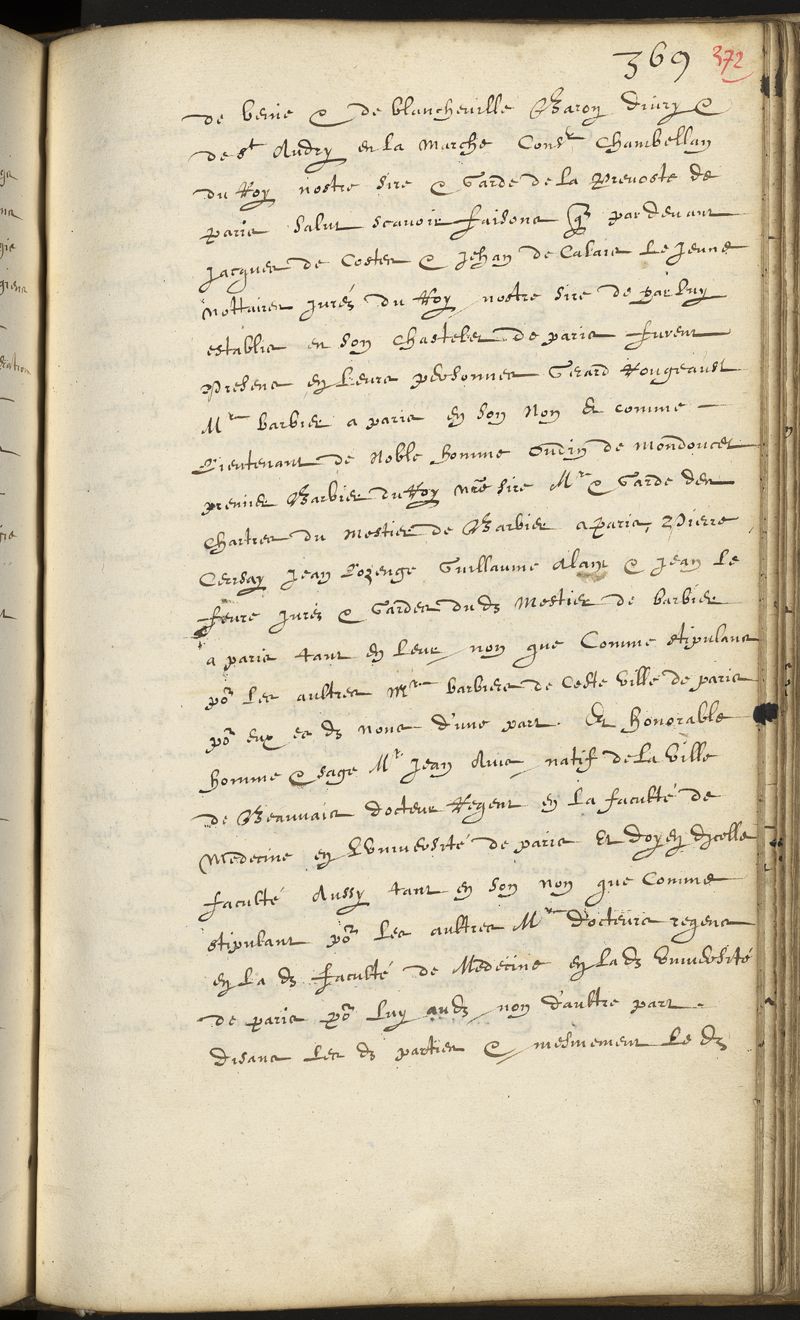 369 372
de beine & de blancheville Baron d'iury &
de st Andry en la Marche Consr Chambellan
du Roy nostre sire & Garde de la Prevoste de
paris salut scavoir faisons q pardevant
Jacques de Costes & Jehan de Calais le Jeune
Nottaires jurés du Roy nostre sire de par luy
establis en son Chastelet de paris furent
Presens en leurs personnes Gerard Rougeault
Mre barbier a paris en son Non et comme
Lieutenant de Noble homme Oudin de mondoucet
premier Barbier du Roy nre sire Mre & Garde des
Chartres du Mestier de Barbier a paris, Pierre
Cerisay Jean Lozenge Guillaume Alam & Jean le
feure Jurés & Gardes dudt Mestier de barbier
a paris tant en leur non que Comme stipulans
por les aultres Mres barbiers de Ceste ville de paris
por eux es dt noms d'une part. Et honorable
homme & sage Mr Jean Avis natif de la Ville
de Beauvais docteur Regent en la faculté de
Medecine en L'Université de paris Et doyen dicelle
faculté Aussy tant en son non que Comme
stipulant por les aultres Mres docteurs regens
en la dt faculté de Medecine en la dt Université
de paris por luy audt non d'aultre part.
disans les dt parties & mesmement le dt